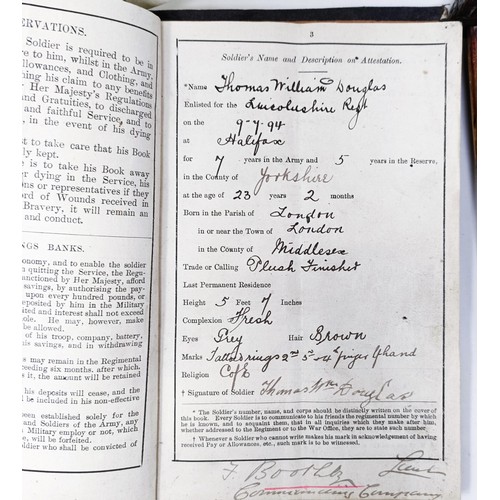 ERVATIONS.
Soldier is required to be in
re to him, whilst in the Army,
llowances, and Clothing, and
ning his claim to any benefits
Her Majesty's Regulations
and Gratuities, to discharged
and faithful Service, and to
, in the event of his dying
t to take care that his Book
ly kept.
is to take his Book away
er dying in the Service, his
ons or representatives if they
ord of Wounds received in
Bravery, it will remain an
and conduct.
NGS BANKS.
onomy, and to enable the soldier
n quitting the Service, the Regu-
anctioned by Her Majesty, afford
savings, by authorising the pay-
upon every hundred pounds, or
deposited by him in the Military
ted and interest shall not exceed
ole. He may, however, make
be allowed.
of his troop, company, battery,
s savings, and in withdrawing
may remain in the Regimental
ceeding six months, after which,
it, the amount will be retained
his deposits will cease, and the
l be included in his non-effective
been established solely for the
and Soldiers of the Army, any
Military employ or not, which
e, will be forfeited.
ldier who shall be convicted of
3
Soldier's Name and Description on Attestation.
*Name Thomas William Douglas
Enlisted for the Lincolnshire Regt
on the 9-7-94
at Halifax
for 7 years in the Army and 5 years in the Reserve,
in the County of Yorkshire
at the age of 23 years 2 months
Born in the Parish of London
in or near the Town of London
in the County of Middlesex
Trade or Calling Plush Finisher
Last Permanent Residence
Height 5 Feet 7 Inches
Complexion Fresh
Eyes Grey Hair Brown
Marks rings 2nd 5 4th finger hand
Religion C of E
† Signature of Soldier Thomas Wm Douglas
* The Soldier's number, name, and corps should be distinctly written on the cover of
this book. Every Soldier is to communicate to his friends the regimental number by which
he is known, and to acquaint them, that in all inquiries which they make after him,
whether addressed to the Regiment or to the War Office, they are to state such number.
† Whenever a Soldier who cannot write makes his mark in acknowledgement of having
received Pay or Allowances, etc., such mark is to be witnessed.
F. Lieut
Commanding Company